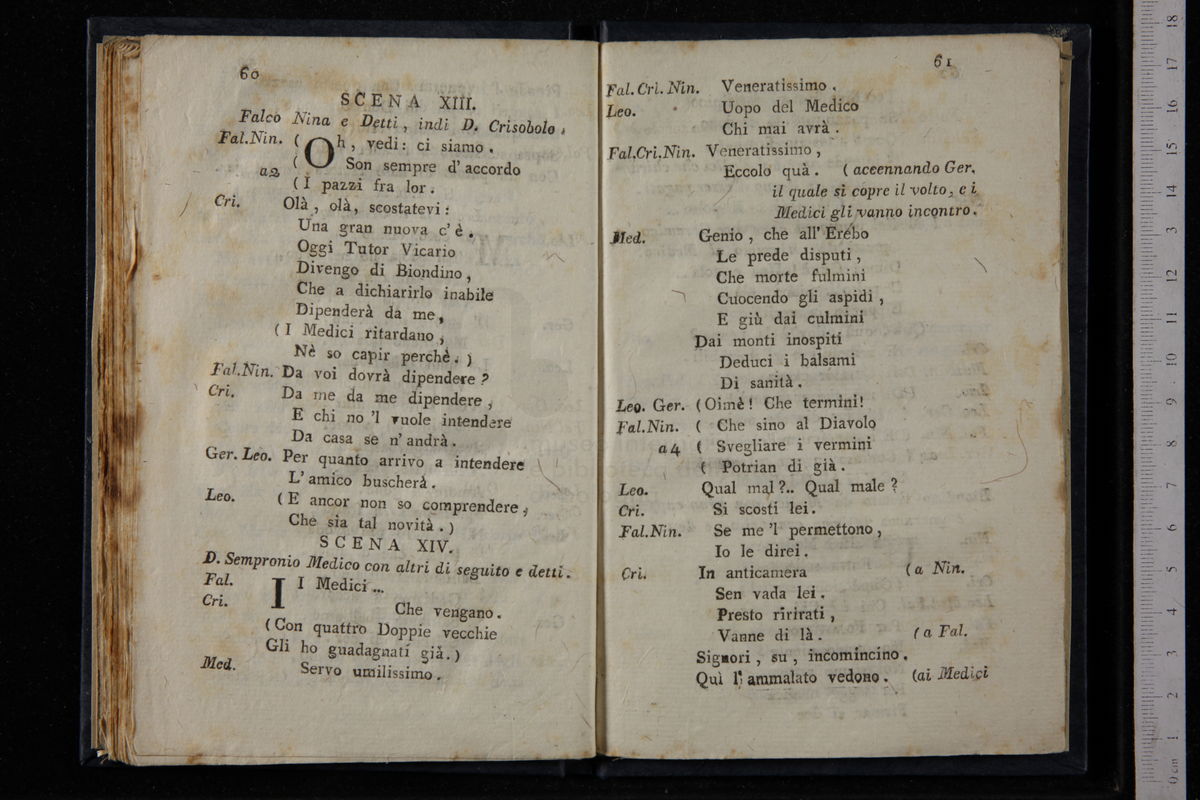 60
SCENA XIII.
Falco Nina e Detti, indi D. Crisobolo.
Fal.Nin. ( Oh, vedi: ci siamo.
a2 ( Son sempre d'accordo
( I pazzi fra lor.
Cri. Olà, olà, scostatevi:
Una gran nuova c'è.
Oggi Tutor Vicario
Divengo di Biondino,
Che a dichiarirlo inabile
Dipenderà da me,
(I Medici ritardano,
Nè so capir perchè.)
Fal.Nin. Da voi dovrà dipendere?
Cri. Da me da me dipendere,
E chi no 'l vuole intendere
Da casa se n'andrà.
Ger. Leo. Per quanto arrivo a intendere
L'amico buscherà.
Leo. (E ancor non so comprendere,
Che sia tal novità.)
SCENA XIV.
D. Sempronio Medico con altri di seguito e detti.
Fal. I I Medici...
Cri. Che vengano.
(Con quattro Doppie vecchie
Gli ho guadagnati già.)
Med. Servo umilissimo.
61
Fal. Cri. Nin. Veneratissimo.
Leo. Uopo del Medico
Chi mai avrà.
Fal.Cri.Nin. Veneratissimo,
Eccolo quà. (accennando Ger.
il quale si copre il volto, e i
Medici gli vanno incontro.
Med. Genio, che all' Erébo
Le prede disputi,
Che morte fulmini
Cuocendo gli aspidi,
E giù dai culmini
Dai monti inospiti
Deduci i balsami
Di sanità.
Leo. Ger. (Oimè! Che termini!
Fal.Nin. ( Che sino al Diavolo
a4 ( Svegliare i vermini
( Potrian di già.
Leo. Qual mal?.. Qual male?
Cri. Si scosti lei.
Fal.Nin. Se me 'l permettono,
Io le direi.
Cri. In anticamera (a Nin.
Sen vada lei.
Presto ririrati,
Vanne di là. (a Fal.
Signori, su, incomincino.
Quì l'ammalato vedono. (ai Medici